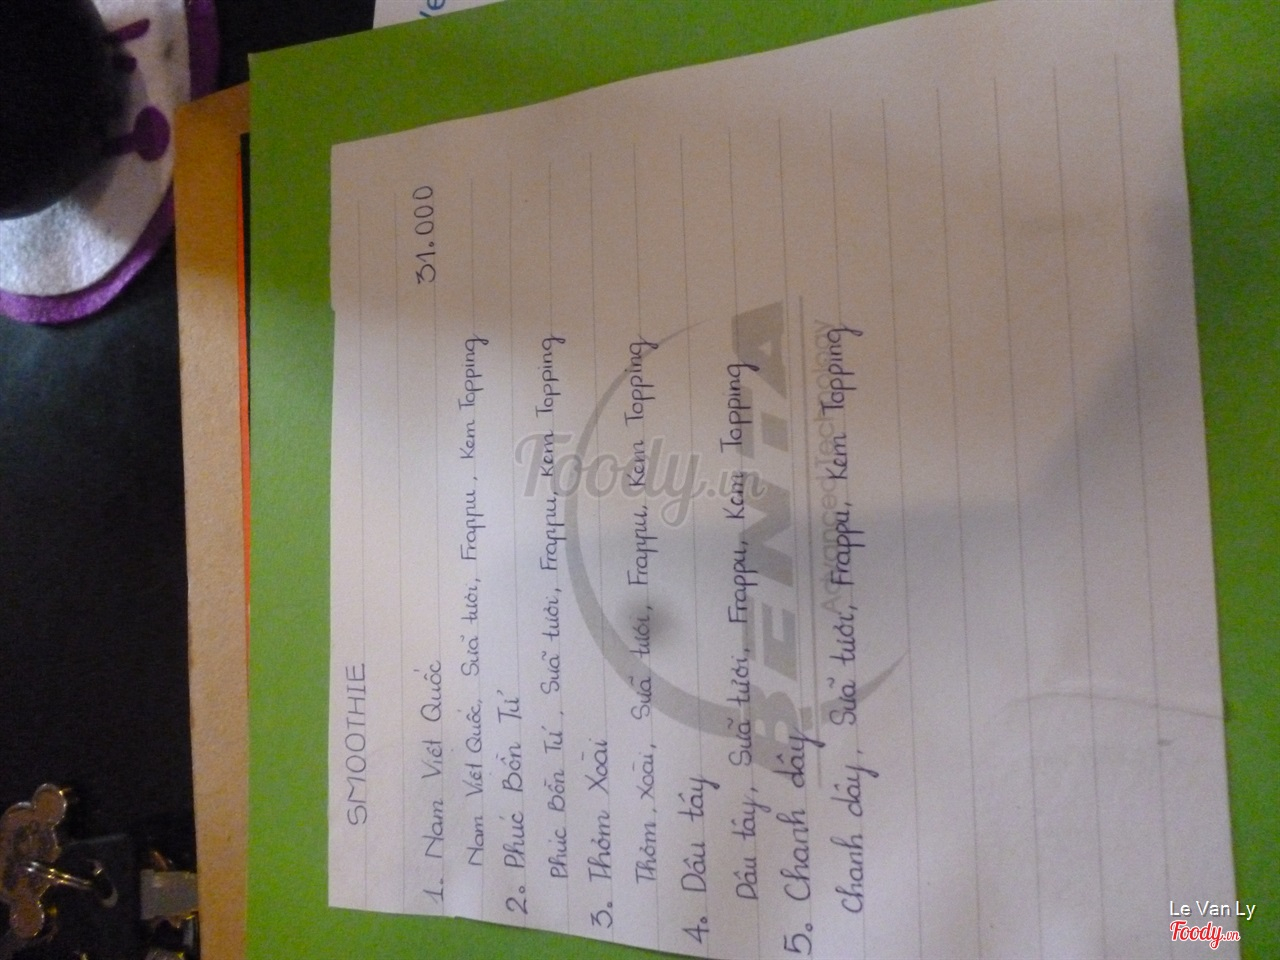 SMOOTHIE
1. Nam Việt Quốc 31.000
Nam Việt Quốc, Sữa tươi, Frappu, Kem Topping
2. Phúc Bồn Tử
Phúc Bồn Tử, Sữa tươi, Frappu, Kem Topping
3. Thơm Xoài
Thơm, Xoài, Sữa tươi, Frappu, Kem Topping
4. Dâu tây
Dâu tây, Sữa tươi, Frappu, Kem Topping
5. Chanh dây
Chanh dây, Sữa tươi, Frappu, Kem Topping
BENTA
Advanced Technology
Foody.vn
Le Van Ly
Foody.vn